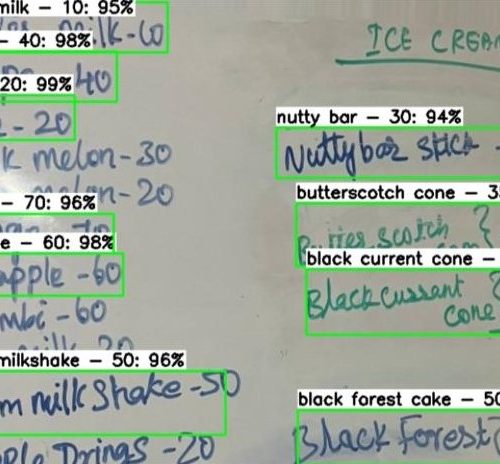 milk – 10: 95%
milk-60
– 40: 98%
40
20: 99%
- 20
k melon-30
melon-20
– 70: 96%
e – 60: 98%
apple -60
mbi -60
milk 20
milkshake – 50: 96%
m milk Shake -50
ple Drings -20
ICE CREAM
nutty bar – 30: 94%
Nutty bar stick -
butterscotch cone – 3
Butter scotch
black current cone –
Black currant
cone
black forest cake – 50
Black Forest